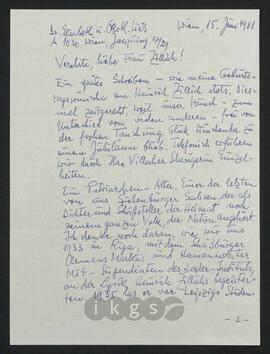 Dr. Elisabeth u. Otto Ließ Wien, 15. Juni 1988
A 1030 Wien,
Verehrte, liebe Frau Zillich!
Ein spätes Schreiben – wie meine Geburts-
tagswünsche an Heinrich Zillich stets. Dies-
mal zeitgerecht weil unser Wunsch – zum
mal nicht – wegen, von
Unterschied von vielen anderen – frei von
der frohen Täuschung Glück Wünschende zu
einem Jubiläum blieb. Telefonisch erfuhren
wir durch Ihre Villacher Schwägerin Einzel-
heiten.
Ein Patriarchen-Alter. Einer der letzten
von uns Siebenbürger Sachsen, der als
Dichter und Schriftsteller der Heimat noch
seinem ganzen Volk, der Nation angehört.
Ich denke noch daran, wie wir uns
1933 in Riga, mit dem Schäßburger
Clemens Markus und Hermannstädter
Mit-Stipendiaten des Herder-Instituts,
an der Lyrik Heinrich Zillichs begeister-
ten, 1935 las er vor Leipzigs Studen-
- 2 -
ikgs